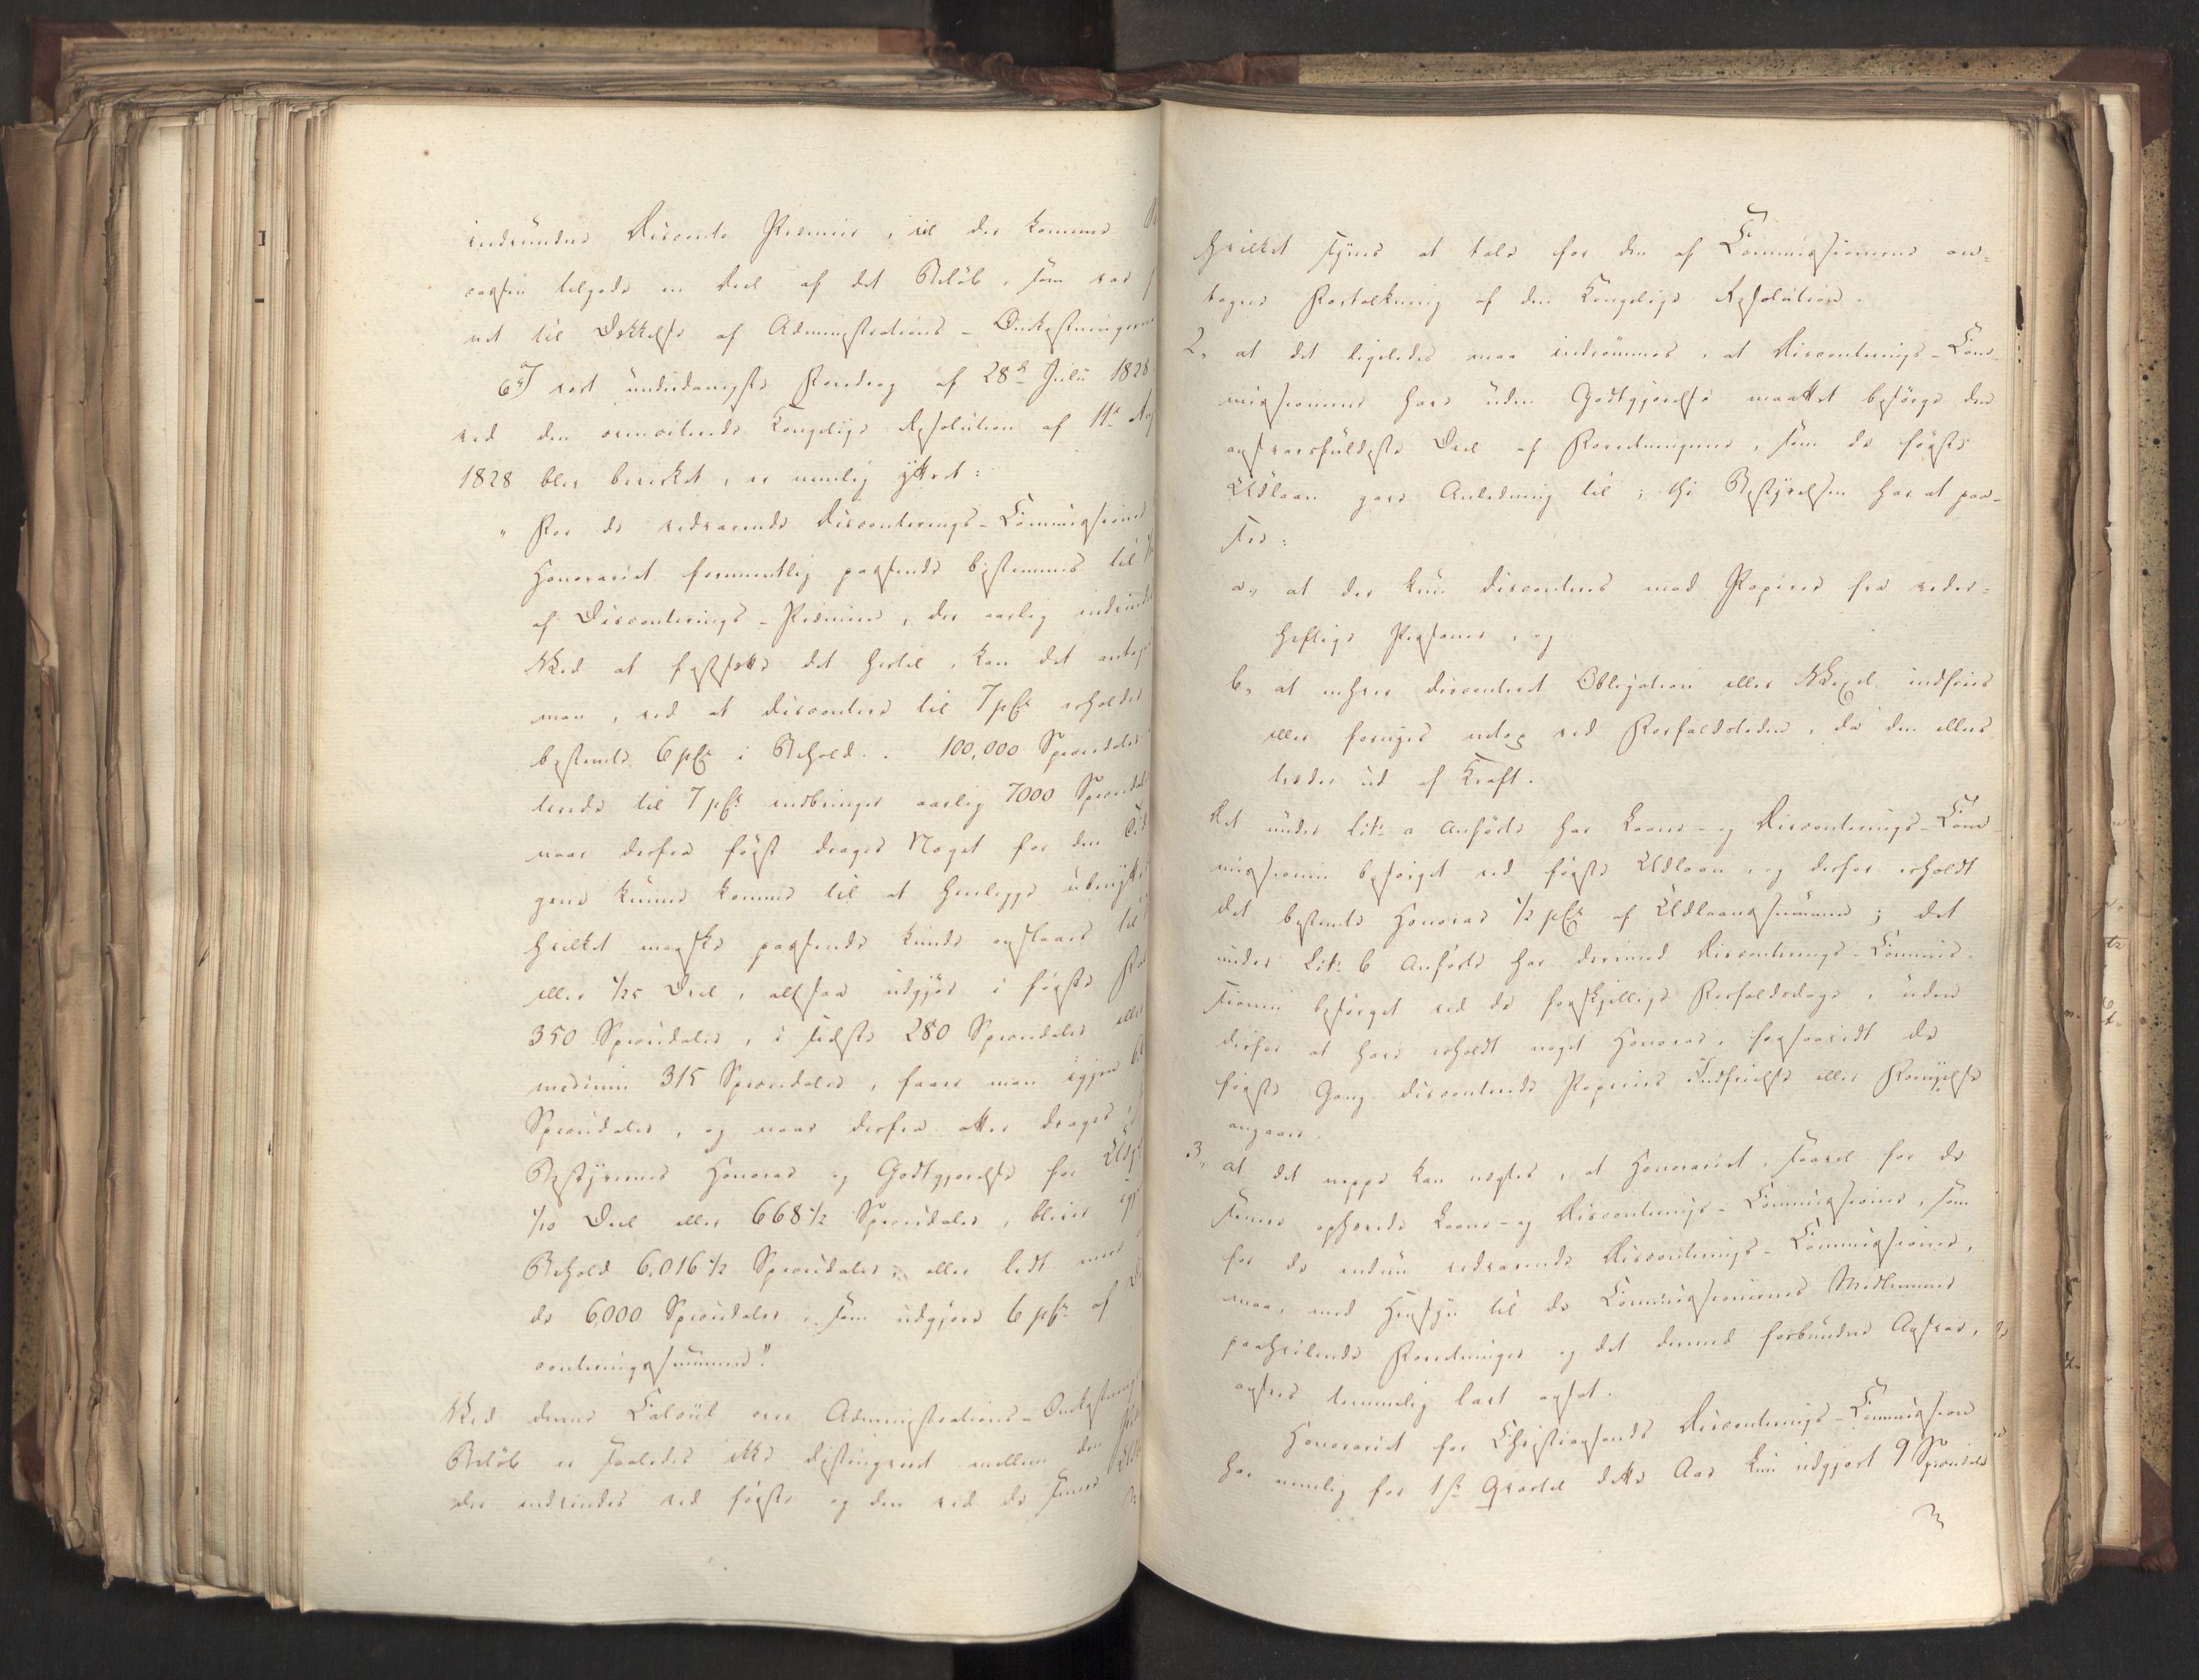 indvundne Disconto Præmie, vil der komme
cassen tilgode en Deel af det Beløb, som var
net til Dækkelse af Administrations-Omkostningerne
6, I vort underdanigste Foredrag af 28de Julii 1828
ved den ommeldende Kongelige Resolution af 11te Aug
1828 blev bevirket, er nemlig yttret:
"For de vedvarende Disconterings-Commissioner
Honorariet formeentlig passende bestemmes til
af Disconterings-Præmien, der aarlig indvindes
Ved at fastsætte det hertil, kan det antages
man, ved at discontere til 7 pCt erholder
bestemte 6 pCt i Behold. 100,000 Speciedaler
terede til 7 pCt indbringer aarlig 7000 Speciedaler
naar derfra først drages Noget for den Tid
gene kunne komme til at henligge ubenyttede
hvilket maaskee passende kunde anslaaes til
eller 1/25 Deel, altsaa udgjør i første
350 Speciedaler, i sidste 280 Speciedaler eller
medium 315 Speciedaler, faaer man igjen
Speciedaler, og naar derfra atter drages
Bestyrernes Honorar og Godtgjørelse for
1/10 Deel eller 668 1/2 Speciedaler, bliver
Behold 6,016 1/2 Speciedaler, eller lidt meer
de 6000 Speciedaler, som udgjøre 6 pCt af
conteringssummen".
Ved denne Calcul over Administrations-Omkostnings
Beløb er saaledes ikke distingveret mellem den
der indvindes ved første og den ved de senere
hvilket synes at tale for den af Commissionerne an-
tagne Fortolkning af den Kongelige Resolution.
2, at det ligeledes maa indrømmes, at Disconterings-Com-
missionerne have uden Godtgjørelse maattet besørge den
ansvarsfuldeste Deel af Forretningerne, som de første
Udlaan gave Anledning til; thi Bestyrelsen har at paa-
see:
a, at der kun disconteres mod Papirer fra veder-
heftige Personer, og
b, at enhver disconteret Obligation eller Vexel indfries
eller fornyes netop ved Forfaldstiden, da den ellers
træder ud af Kraft.
Det under Litr. a Anførte har Laane- og Disconterings-Com-
missionen besørget ved første Udlaan, og derfor erholdt
det bestemte Honorar 1/2 pCt af Udlaanssummen; det
under Litr. b Anførte har derimod Disconterings-Commis-
sionen besørget ved de forskjellige Forfaldsdage, uden
derfor at have erholdt noget Honorar, forsaavidt de
første Gang disconterede Papirers Indfrielse eller Fornyelse
angaaer.
3, at det neppe kan nægtes, at Honorariet, saavel for de
senere ophævede Laane- og Disconterings-Commissioner, som
for de endnu vedvarende Disconterings-Commissioner,
maa, med Hensyn til de Commissionernes Medlemmer
paahvilende Forretninger og det dermed forbundne Ansvar,
ansees temmelig lavt ansat.
Honorariet for Christiansands Disconterings-Commission
har nemlig for 1ste Qvartal dette Aar kun udgjort 9 Speciedaler